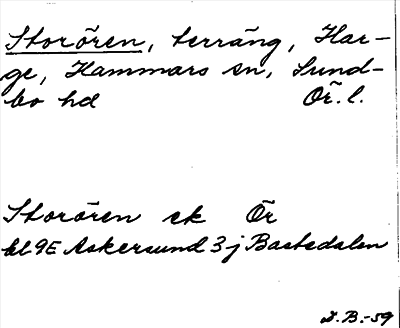 Storören, terräng, Har-
ge, Hammars sn, Sund-
bo hd Ör. l.
Storören ek Ör
bl 9E Askersund 3 j Bastedalen
D.B.-59